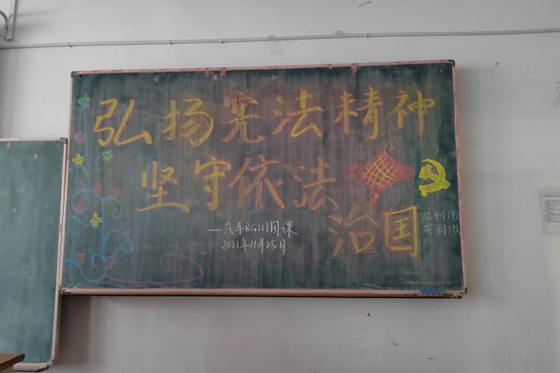 弘扬宪法精神
坚守依法
治国
—汽车BG211团课
2021年11月25日